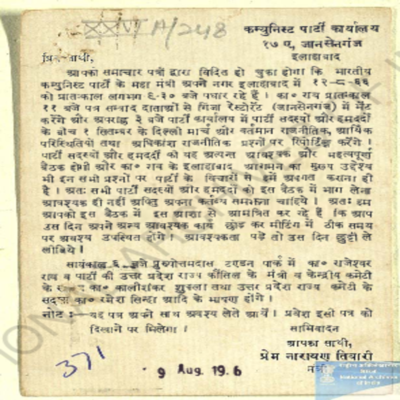 XXVI A/248
कम्युनिस्ट पार्टी कार्यालय
१७ ए, जानसेनगंज
इलाहाबाद
प्रिय साथी,
आपको समाचार पत्रों द्वारा विदित हो चुका होगा कि भारतीय
कम्युनिस्ट पार्टी के महा मंत्री अपने नगर इलाहाबाद में १२-८-६६
को प्रातःकाल लगभग ९-३० बजे पधार रहे हैं। का० प्रातःकाल
११ बजे पत्र सम्वाद दाताओं से गिजा रेस्टोरेंट (जानसेनगंज) में भेंट
करेंगे और अपराह्न ३ बजे पार्टी कार्यालय में पार्टी सदस्यों और हमदर्दों
के बीच १ सितम्बर के दिल्ली मार्च और वर्तमान राजनीतिक, आर्थिक
परिस्थितियों तथा अधिकांश राजनीतिक प्रश्नों पर रिपोर्टिंग करेंगे।
पार्टी सदस्यों और हमदर्दों की यह अत्यन्त आवश्यक और महत्वपूर्ण
बैठक होगी और का० के इलाहाबाद आगमन का मुख्य उद्देश्य
भी इन सभी प्रश्नों पर पार्टी के विचारों से हमें अवगत कराना ही
है। अतः सभी पार्टी सदस्यों और हमदर्दों को इस बैठक में भाग लेना
आवश्यक ही नहीं अपितु अपना कर्तव्य समझना चाहिये। अतः हम
आपको इस बैठक में इस आशा से आमंत्रित कर रहे हैं कि आप
उस दिन अपने अन्य आवश्यक कार्य छोड़ कर मीटिंग में ठीक समय
पर अवश्य उपस्थित होंगे। आवश्यकता पड़े तो उस दिन छुट्टी ले
लीजिये।
सायंकाल ६ बजे पुरुषोत्तमदास टण्डन पार्क में का० राजेश्वर
राव व पार्टी की उत्तर प्रदेश राज्य कौंसिल के मंत्री व केन्द्रीय कमेटी
के का० कालीशंकर शुक्ला तथा उत्तर प्रदेश राज्य कमेटी के
सदस्य का० रमेश सिन्हा आदि के भाषण होंगे।
नोट :—यह पत्र अपने साथ अवश्य लेते आयें। प्रवेश इसी पत्र को
दिखाने पर मिलेगा।
साभिवादन
आपका साथी,
प्रेम नारायण तिवारी
मंत्री
371
9 Aug 196